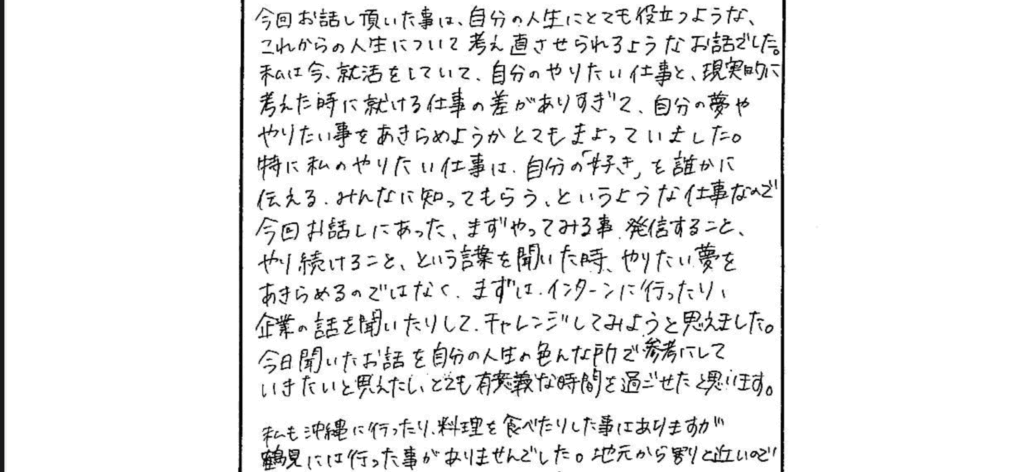 今回お話し頂いた事は、自分の人生にとても役立つような、
これからの人生について考え直させられるようなお話でした。
私は今、就活をしていて、自分のやりたい仕事と、現実的に
考えた時に就ける仕事の差がありすぎて、自分の夢や
やりたい事をあきらめようかとてもまよっていました。
特に私のやりたい仕事は、自分の「好き」を誰かに
伝える、みんなに知ってもらう、というような仕事なので
今回お話しにあった、まずやってみる事、発信すること、
やり続けること、という言葉を聞いた時、やりたい夢を
あきらめるのではなく、まずは、インターンに行ったり、
企業の話を聞いたりして、チャレンジしてみようと思えました。
今日聞いたお話を自分の人生の色んな所で参考にして
いきたいと思えたし、とても有意義な時間を過ごせたと思います。
私も沖縄に行ったり、料理を食べたりした事はありますが
鶴見には行った事がありませんでした。地元から割と近いので